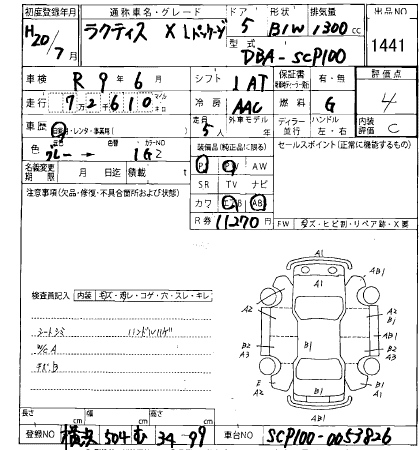 初度登録年月 通称車名・グレード ドア 形状 排気量 出品NO
H20/7 月 ラクティス X Lパッケージ 5 B1W 1300 cc 1441
型式 DBA-SCP100
車検 R 9 年 6 月 シフト 1 AT 保証書 有・無 評価点
走行 7 2 6 1 0 冷房 AAC 燃料 G 4
車歴 自家用・レンタ・事業用( ) 定員 5人 外車モデル 年 ディーラー 並行 ハンドル 左・右 内装評価 C
色 元色 グレー → 色替 カラーNO 1G2 装備品(純正品に限る) セールスポイント(正常に機能するもの)
名義変更期限 月 日迄 積載 t PS PW AW
注意事項(欠品・修復・不具合箇所および状態) SR TV ナビ
カワ エアB AB
R券 11270 円 FW キズ・ヒビ割・リペア跡・X要
A1
A1 AB1
検査員記入 内装 キズ・汚レ・コゲ・穴・スレ・キレ A2 A2
シートシミ ハンドルハゲ A1 AB1
W/C A B2 A3 B1 B2 A3
E A2 B1 A1 A2
AB1
長さ cm 幅 cm 高さ cm
登録NO 横浜 504 む 34-99 車台NO SCP100-0053826